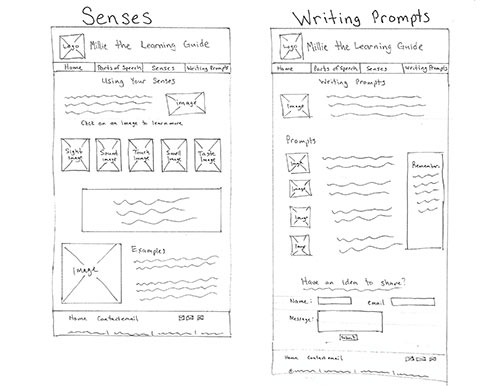 Senses
Logo Millie the Learning Guide
Home Parts of Speech Senses Writing Prompts
Using Your Senses
image
Click on an image to learn more
Sight image Sound image Touch image Smell image Taste image
Examples
Image
Home Contact email
Writing Prompts
Logo Millie the Learning Guide
Home Parts of Speech Senses Writing Prompts
Writing Prompts
Image
Prompts
Image
Remember:
Image
Image
Image
Have an idea to share?
Name: email
Message:
Submit
Home Contact email